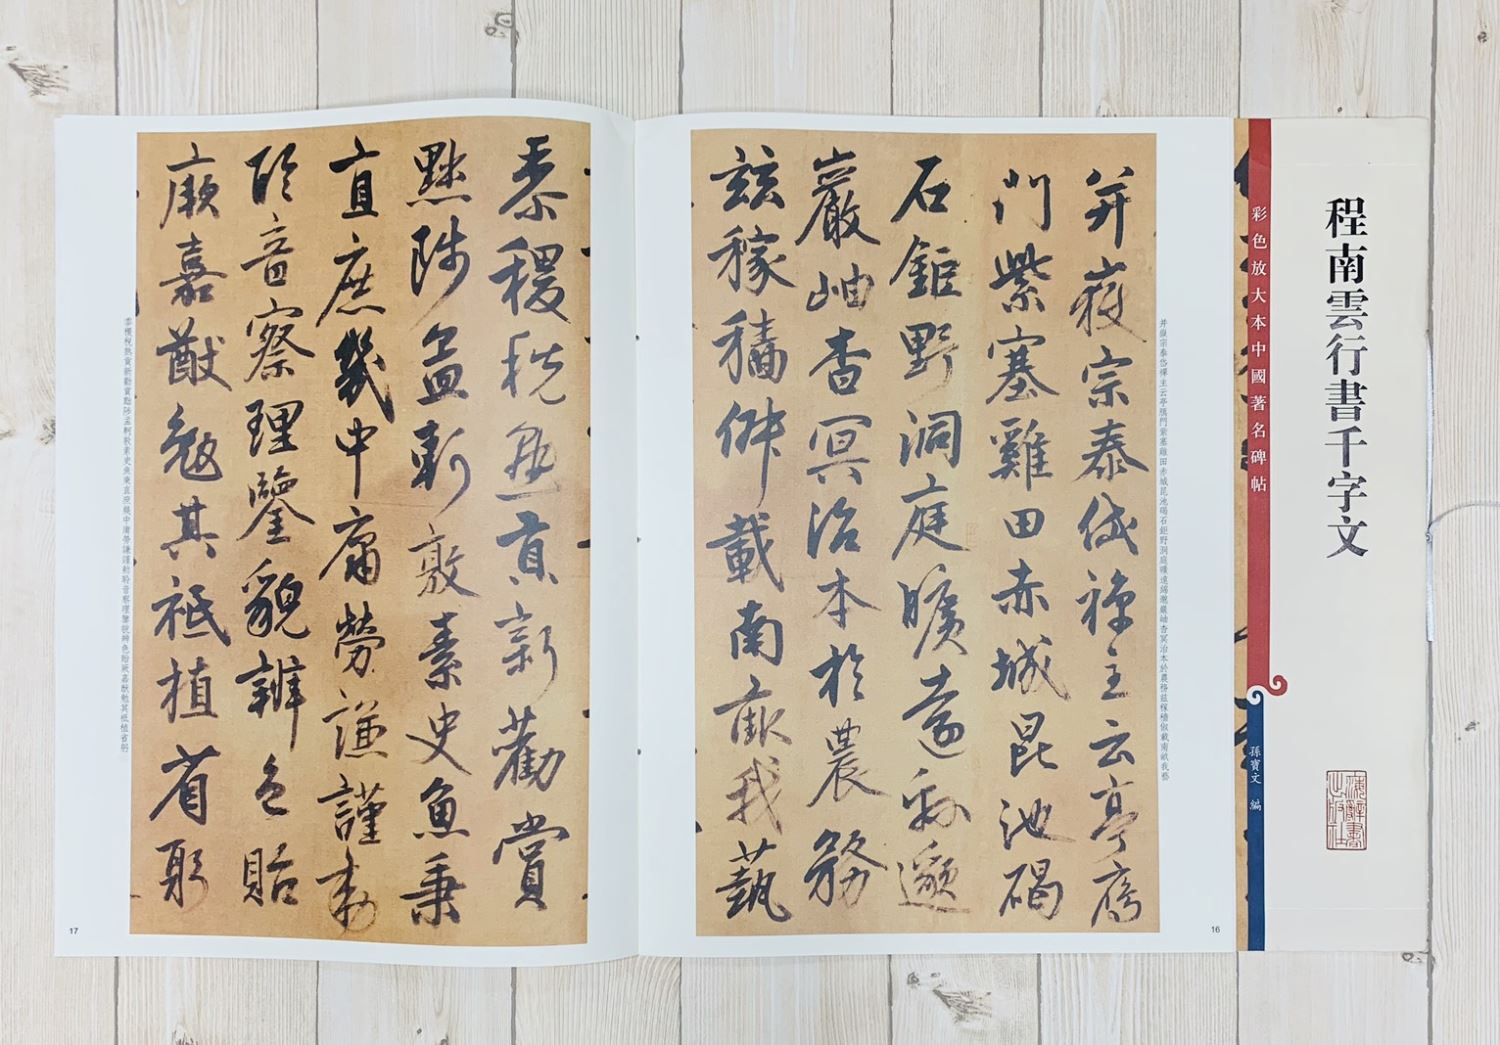 程南雲行書千字文
彩色放大本中國著名碑帖
孫寶文 編
并嶽宗泰岱禪主云亭鴈門紫塞雞田赤城昆池碣石鉅野洞庭曠遠綿邈巖岫杳冥治本於農務茲稼穡俶載南畝我藝
并嶽宗泰岱禪主云亭鴈
門紫塞雞田赤城昆池碣
石鉅野洞庭曠遠綿邈
巖岫杳冥治本於農務
茲稼穡俶載南畝我藝
16
黍稷稅熟貢新勸賞
黜陟孟軻敦素史魚秉
直庶幾中庸勞謙謹敕
聆音察理鑒貌辨色貽
厥嘉猷勉其祗植省躬
黍稷稅熟貢新勸賞黜陟孟軻敦素史魚秉直庶幾中庸勞謙謹敕聆音察理鑒貌辨色貽厥嘉猷勉其祗植省躬
17